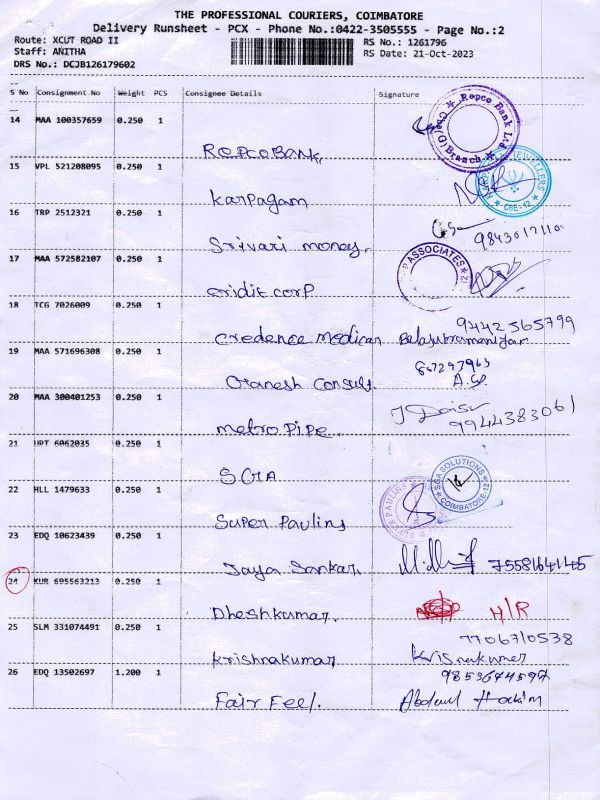 THE PROFESSIONAL COURIERS, COIMBATORE
Delivery Runsheet - PCX - Phone No.:0422-3505555 - Page No.:2
Route: XCUT ROAD II
RS No.: 1261796
Staff: ANITHA
RS Date: 21-Oct-2023
DRS No.: DCJB126179602
S No Consignment No Weight PCS Consignee Details Signature
14 MAA 100357659 0.250 1
Repco Bank Ltd
(Branch)
RepcoBank,
15 VPL 521208095 0.250 1
JEWELLERS
CBE-12
Karpagam
16 TRP 2512321 0.250 1
9843017110
Srivari money,
17 MAA 572582107 0.250 1
ASSOCIATES
cridit corp
18 TCG 7026009 0.250 1
9442565799
Credence medical
19 MAA 571696308 0.250 1
867297963
Ganesh Consult.
20 MAA 300401253 0.250 1
9944383061
metro pipe
21 UPT 6062035 0.250 1
SGA
S&A SOLUTIONS
COIMBATORE-12
22 HLL 1479633 0.250 1
SUPER PAULINS
Super Paulins
23 EDQ 10623439 0.250 1
Jaya Sankar. 7558164145
24 KUR 695563213 0.250 1
Dheshkumar. H/R
25 SLM 331074491 0.250 1
7706710538
Krishnakumar Krisnakumer
26 EDQ 13502697 1.200 1
9853674597
Fair Feel. Abdul Hakim